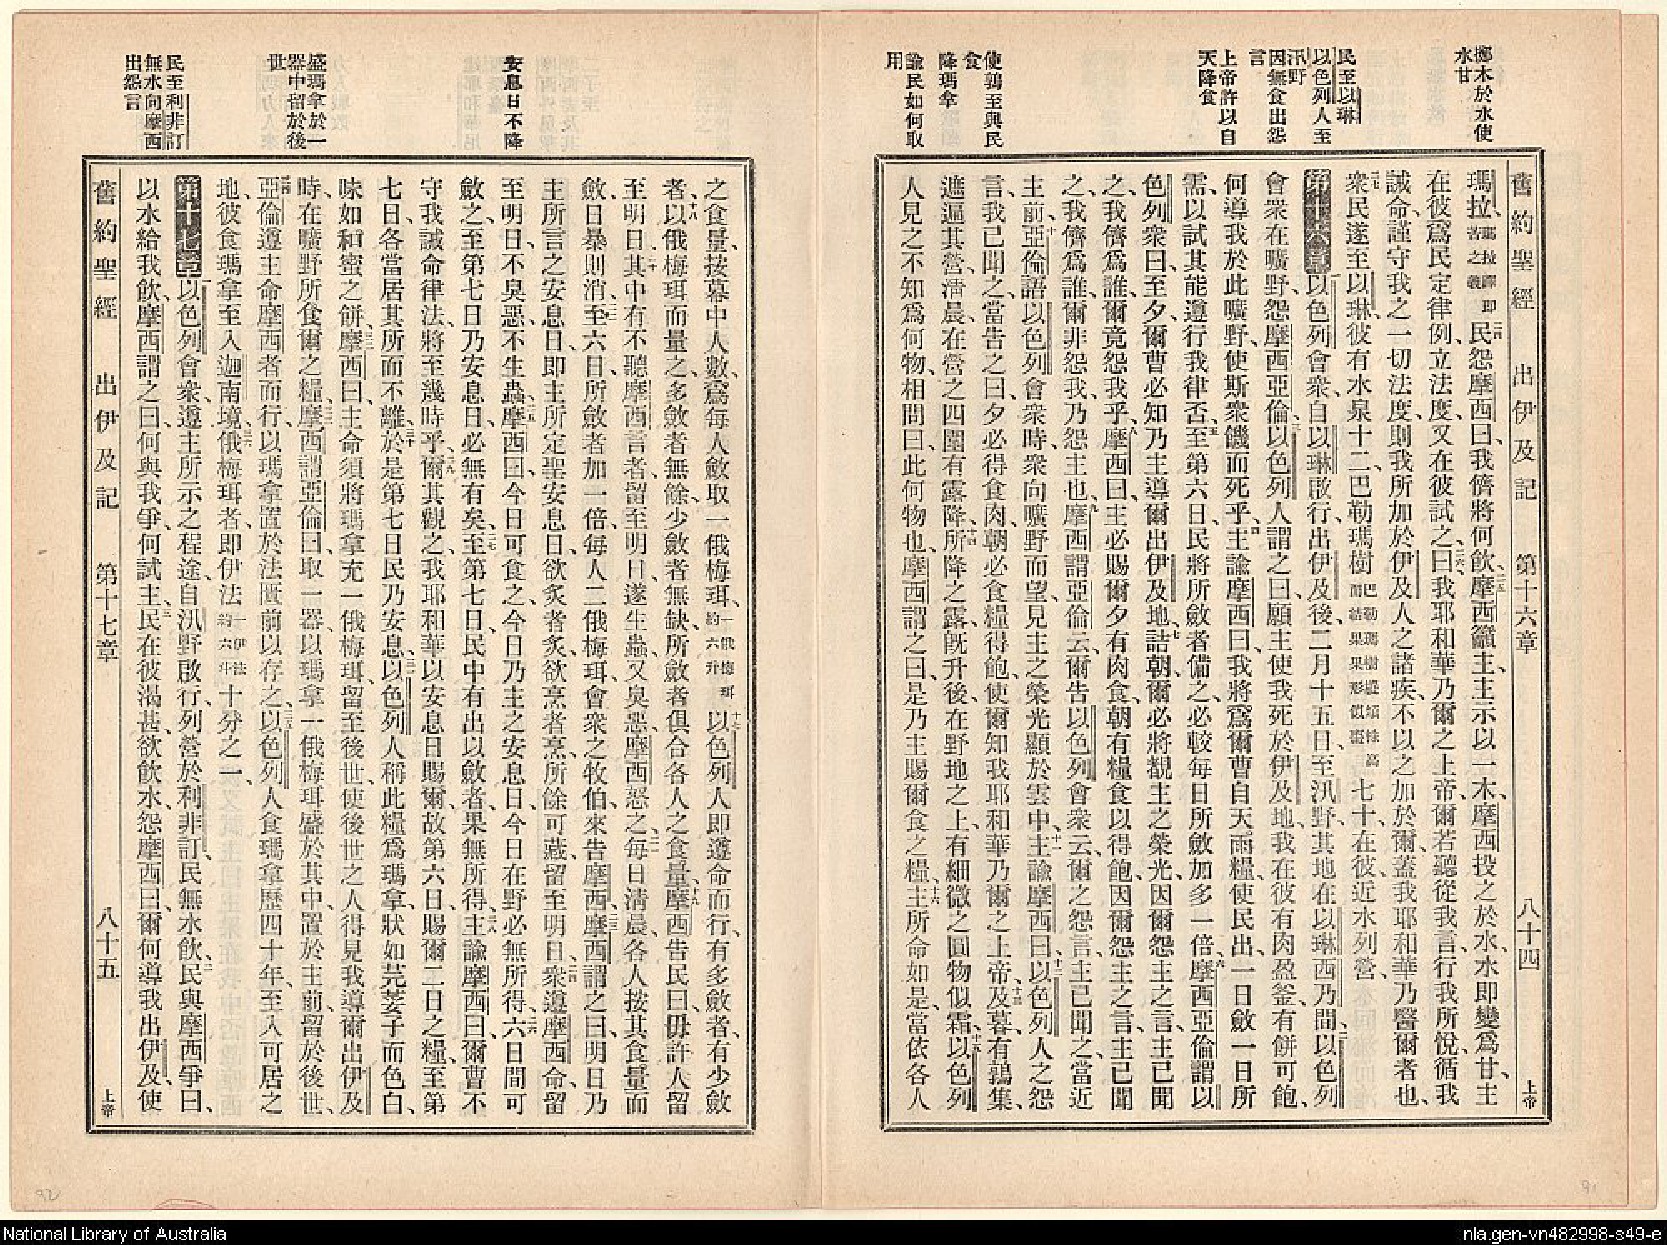 舊約聖經 出伊及記 第十六章 八十四 上帝
擲木於水使
水甘
民至以琳
以色列人至
汛野
因無食出怨
言
上帝許以自
天降食
使鶉至與民
食
降瑪拿
諭民如何取
用
瑪拉、瑪拉譯即苦之義民怨摩西曰、我儕將何飲、摩西籲主、主示以一木、摩西投之於水、水即變爲甘、主
在彼爲民定律例、立法度、又在彼試之、曰、我耶和華乃爾之上帝、爾若聽從我言、行我所悅、循我
誡命、謹守我之一切法度、則我所加於伊及人之諸疾、不以之加於爾、蓋我耶和華乃醫爾者也、
衆民遂至以琳、彼有水泉十二、巴勒瑪樹七十、在彼近水列營、
第十六章 以色列會衆、自以琳啟行、出伊及後、二月十五日、至汛野、其地在以琳西乃間、以色列
會衆在曠野、怨摩西亞倫、以色列人謂之曰、願主使我死於伊及地、我在彼有肉盈釜、有餅可飽、
何導我於此曠野、使斯衆饑而死乎、主諭摩西曰、我將爲爾曹自天雨糧、使民出、一日斂一日所
需、以試其能遵行我律否、至第六日、民將所斂者備之、必較每日所斂加多一倍、摩西亞倫謂以
色列衆曰、至夕、爾曹必知乃主導爾出伊及地、詰朝、爾必將覩主之榮光、因爾怨主之言、主已聞
之、我儕爲誰、爾竟怨我乎、摩西曰、主必賜爾夕有肉食、朝有糧食以得飽、因爾怨主之言、主已聞
之、我儕爲誰、爾非怨我、乃怨主也、摩西謂亞倫云、爾告以色列會衆云、爾之怨言、主已聞之、當近
主前、亞倫語以色列會衆時、衆向曠野而望、見主之榮光顯於雲中、主諭摩西曰、以色列人之怨
言、我已聞之、當告之曰、夕必得食肉、朝必食糧得飽、使爾知我耶和華乃爾之上帝、及暮、有鶉集、
遮遍其營、清晨、在營之四圍有露降、所降之露旣升後、在野地之上、有細微之圓物似霜、以色列
人見之、不知爲何物、相問曰、此何物也、摩西謂之曰、是乃主賜爾食之糧、主所命如是、當依各人
之食量、按幕中人數、爲每人斂取一俄梅珥、一俄梅珥約六升以色列人即遵命而行、有多斂者、有少斂
者、以俄梅珥而量之、多斂者無餘、少斂者無缺、所斂者俱合各人之食量、摩西告民曰、毋許人留
至明日、其中有不聽摩西言者、留至明日、遂生蟲又臭惡、摩西怒之、每日清晨、各人按其食量而
斂、日暴則消、至六日、所斂者加一倍、每人二俄梅珥、會衆之牧伯來告摩西、摩西謂之曰、明日乃
主所言之安息日、即主所定聖安息日、欲炙者炙、欲烹者烹、所餘可藏、留至明日、衆遵摩西命、留
至明日、不臭惡、不生蟲、摩西曰、今日可食之、今日乃主之安息日、今日在野必無所得、六日間可
斂之、至第七日乃安息日、必無有矣、至第七日、民中有出以斂者、果無所得、主諭摩西曰、爾曹不
守我誡命律法、將至幾時乎、爾其觀之、我耶和華以安息日賜爾、故第六日、賜爾二日之糧、至第
七日、各當居其所而不離、於是第七日民乃安息、以色列人稱此糧爲瑪拿、狀如芫荽子而色白、
味如和蜜之餅、摩西曰、主命須將瑪拿充一俄梅珥、留至後世、使後世之人得見我導爾出伊及
時、在曠野所食爾之糧、摩西謂亞倫曰、取一器、以瑪拿一俄梅珥盛於其中、置於主前、留於後世、
亞倫遵主命摩西者而行、以瑪拿置於法匱前以存之、以色列人食瑪拿歷四十年、至入可居之
地、彼食瑪拿至入迦南境、俄梅珥者、即伊法一伊法約六斗十分之一、
第十七章 以色列會衆、遵主所示之程途、自汛野啟行、列營於利非訂、民無水飲、民與摩西爭曰、
以水給我飲、摩西謂之曰、何與我爭、何試主、民在彼渴甚、欲飲水、怨摩西曰、爾何導我出伊及、使
安息日不降
盛瑪拿於一
器中留於後
世
民至利非訂
無水向摩西
出怨言
舊約聖經 出伊及記 第十七章 八十五 上帝
92
91
National Library of Australia
nla.gen-vn482998-s49-e